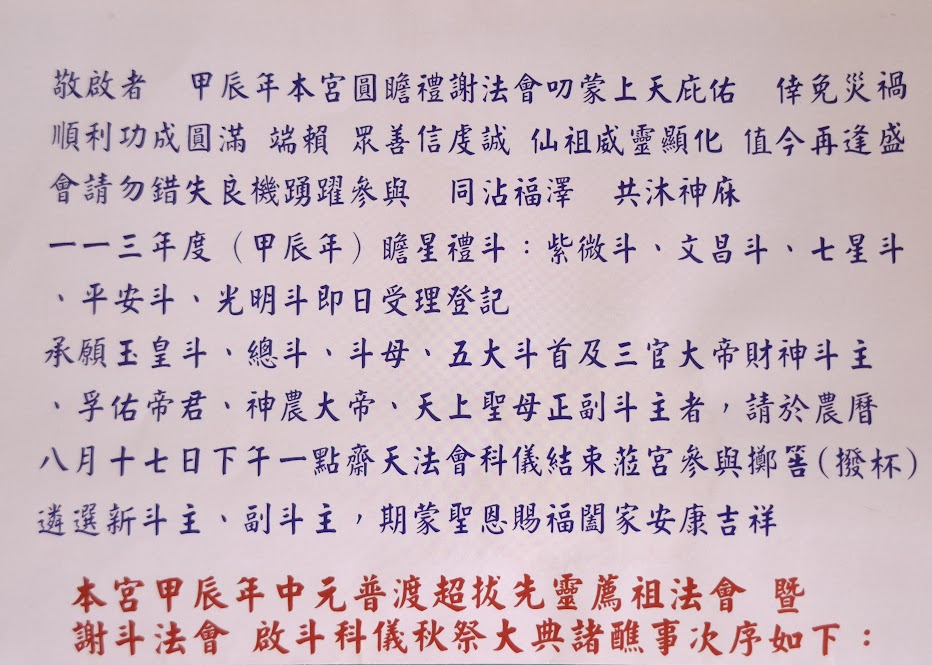 敬啟者　甲辰年本宮圓瞻禮謝法會叨蒙上天庇佑　倖免災禍
順利功成圓滿 端賴 眾善信虔誠 仙祖威靈顯化 值今再逢盛
會請勿錯失良機踴躍參與　同沾福澤　共沐神庥
一一三年度（甲辰年）瞻星禮斗：紫微斗、文昌斗、七星斗
、平安斗、光明斗即日受理登記
承願玉皇斗、總斗、斗母、五大斗首及三官大帝財神斗主
、孚佑帝君、神農大帝、天上聖母正副斗主者，請於農曆
八月十七日下午一點齋天法會科儀結束蒞宮參與擲筶（撥杯）
遴選新斗主、副斗主，期蒙聖恩賜福闔家安康吉祥
本宮甲辰年中元普渡超拔先靈薦祖法會 暨
謝斗法會 啟斗科儀秋祭大典諸醮事次序如下：